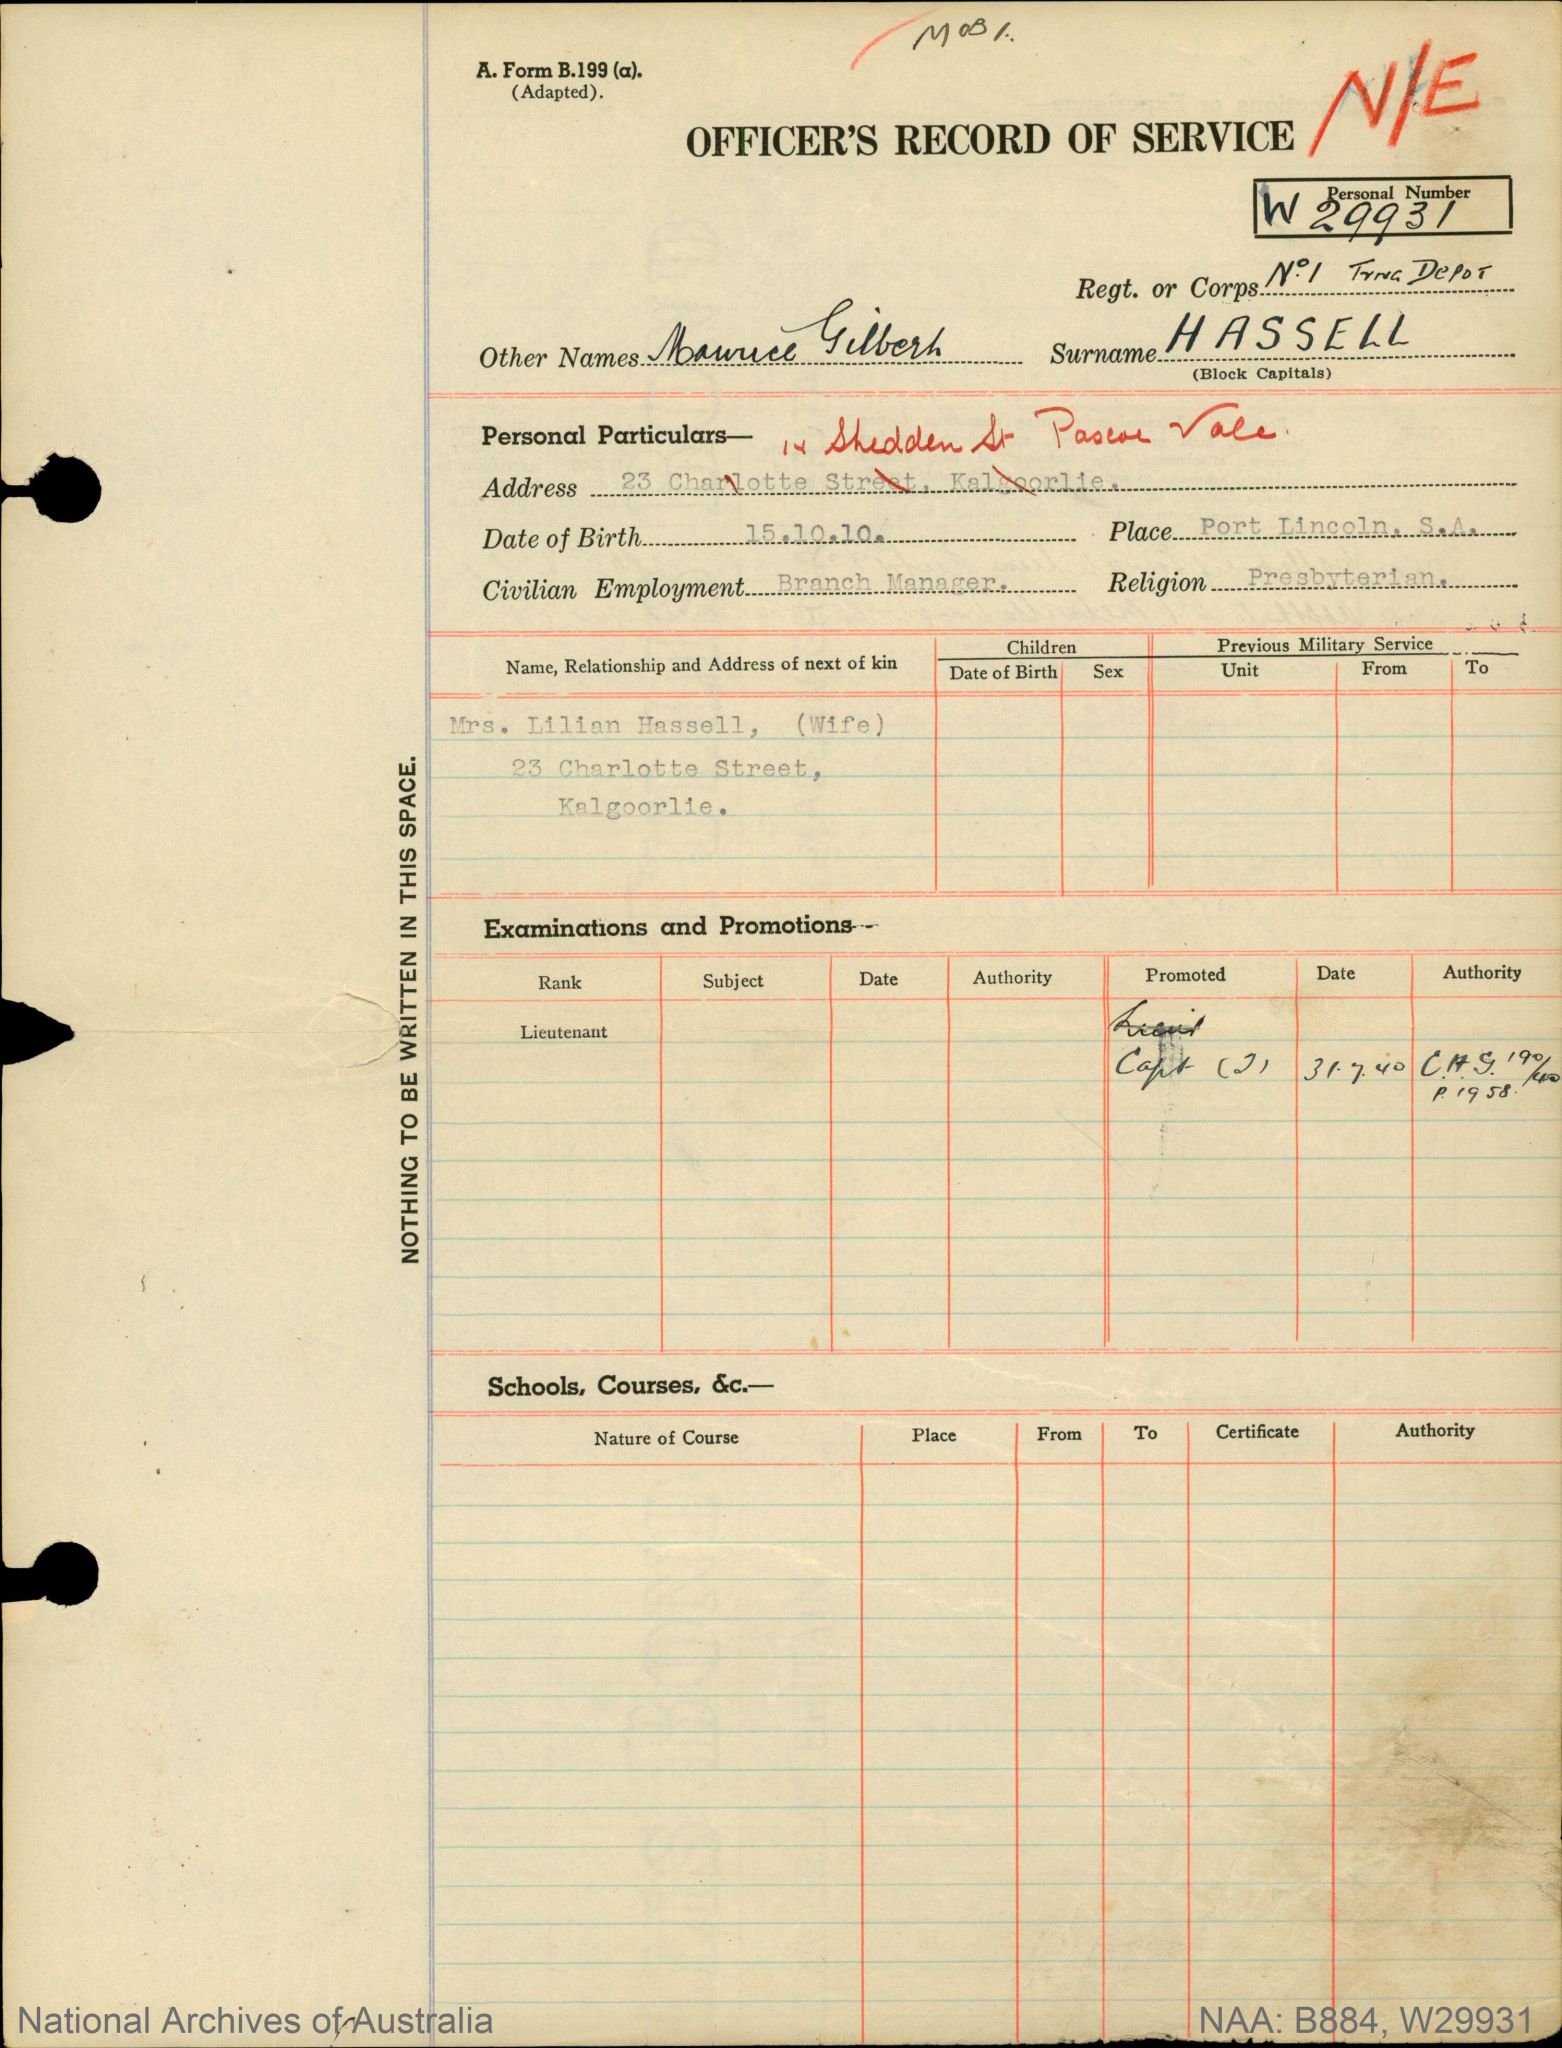 MOB 1.
A. Form B.199 (a).
(Adapted).
N/E
OFFICER'S RECORD OF SERVICE
Personal Number
W 29931
Regt. or Corps No. 1 Trng Depot
Other Names Maurice Gilbert Surname HASSELL
(Block Capitals)
Personal Particulars— 14 Shedden St Pascoe Vale.
Address 23 Charlotte Street, Kalgoorlie.
Date of Birth 15.10.10. Place Port Lincoln, S.A.
Civilian Employment Branch Manager. Religion Presbyterian.
Name, Relationship and Address of next of kin Children Previous Military Service
Date of Birth Sex Unit From To
Mrs. Lilian Hassell, (Wife)
23 Charlotte Street,
Kalgoorlie.
NOTHING TO BE WRITTEN IN THIS SPACE.
Examinations and Promotions—
Rank Subject Date Authority Promoted Date Authority
Lieutenant Lieut
Capt (T) 31.7.40 C.A.G. 190/40
P. 1958.
Schools, Courses, &c.—
Nature of Course Place From To Certificate Authority
National Archives of Australia NAA: B884, W29931